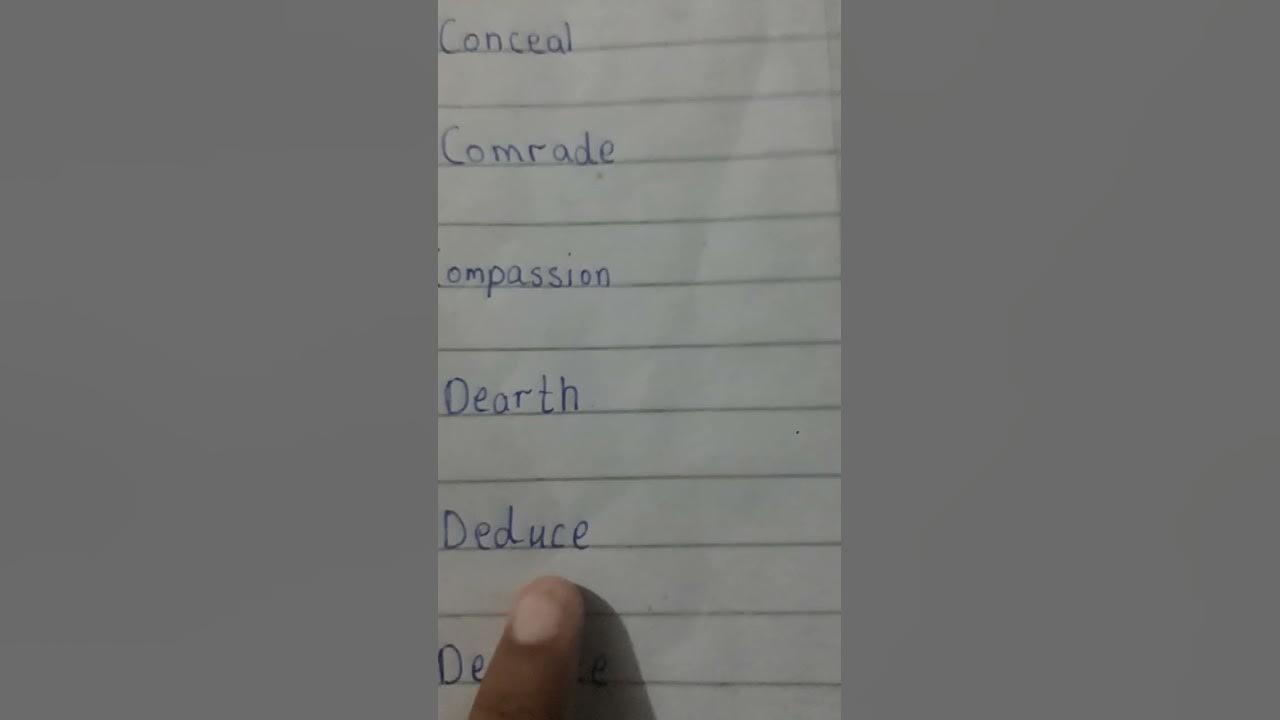 Conceal
Comrade
ompassion
Dearth
Deduce